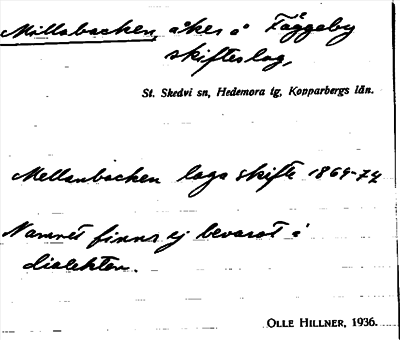 Millabacken, åker å Fäggeby
skifteslag,
St. Skedvi sn, Hedemora tg, Kopparbergs län.
Mellanbacken laga skifte 1869-74
Namnet finns ej bevarat i
dialekten.
OLLE HILLNER, 1936.